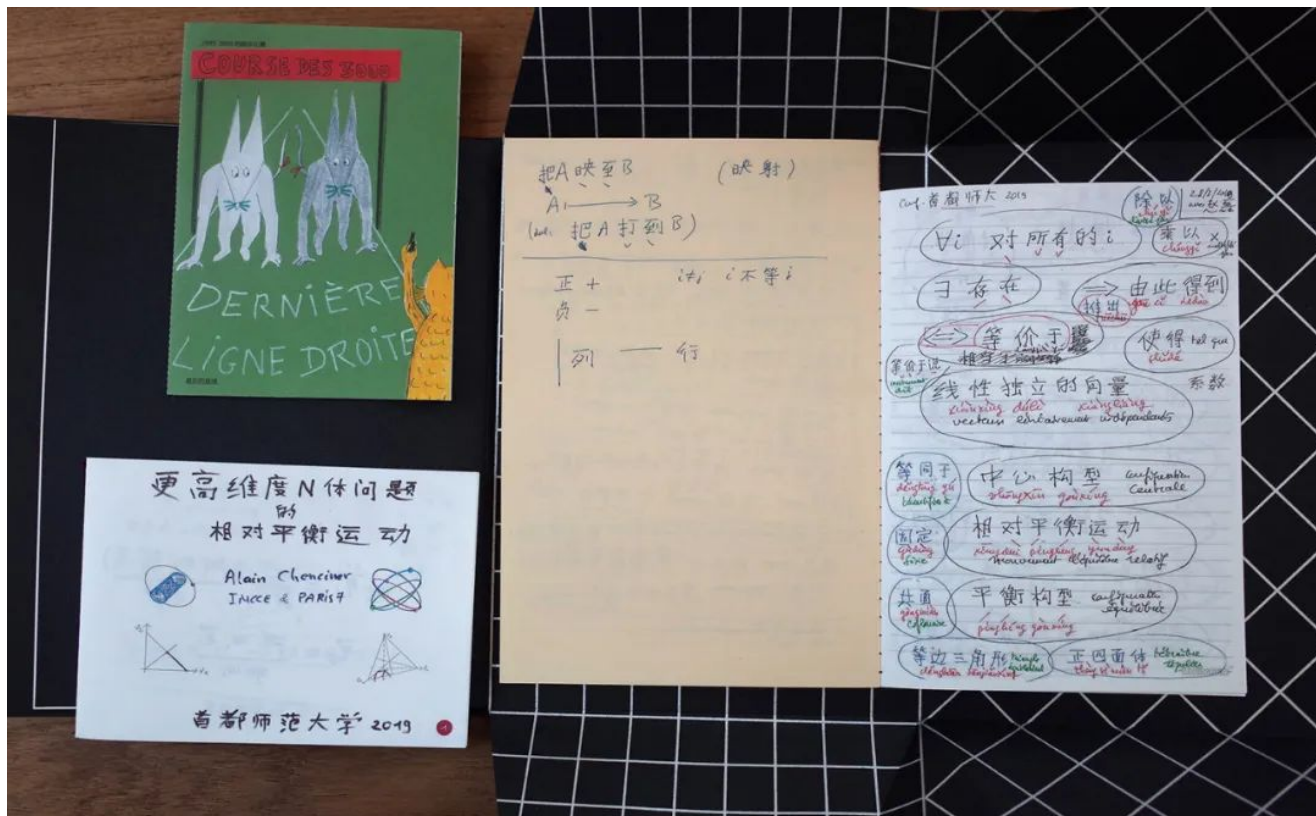 COURSE DES 3000
DERNIÈRE
LIGNE DROITE
更高维度N体问题
的
相对平衡运动
Alain Chenciner
IMCCE & PARIS 7
首都师范大学 2019
1
把A映至B (映射)
A ⟼ B
把A打到B)
正 + i≠j i不等j
负 −
列 行
首都师大 2019
除以
∀i 对所有的i
乘以 ×
chéngyǐ
∃ 存在
⟹ 由此得到
推出
⟺ 等价于
使得 tel que
shǐdé
等价于说
线性独立的向量
系数
xiànxìng dúlì xiàngliàng
vecteurs linéairement indépendants
等同于
中心构型 configuration
centrale
zhōngxīn gòuxíng
固定
相对平衡运动
xiāngduì pínghéng yùndòng
mouvement d'équilibre relatif
共面
平衡构型 configuration
équilibrée
pínghéng gòuxíng
等边三角形
正四面体 tétraèdre
régulier